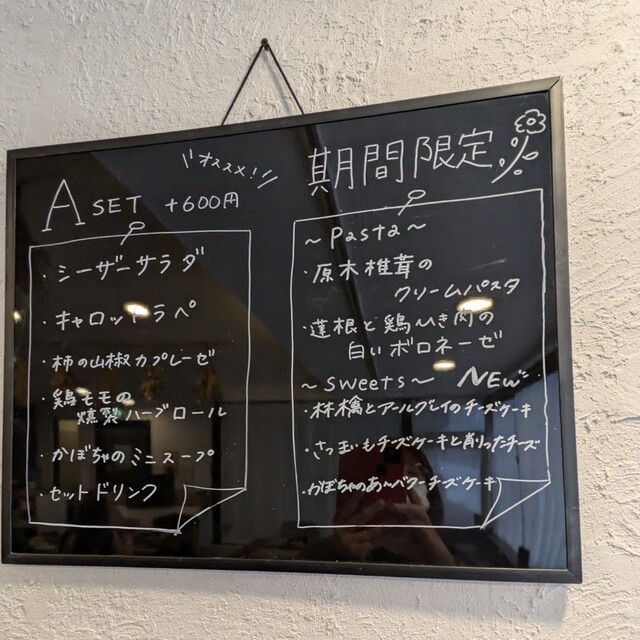 オススメ!
A SET +600円
・シーザーサラダ
・キャロットラペ
・柿の山椒カプレーゼ
・鶏モモの
燻製ハーブロール
・かぼちゃのミニスープ
・セットドリンク
期間限定
~Pasta~
・原木椎茸の
クリームパスタ
・蓮根と鶏ひき肉の
白いボロネーゼ
~sweets~ NEW
・林檎とアールグレイのチーズケーキ
・さつまいもチーズケーキと削ったチーズ
・かぼちゃのあ〜バターチーズケーキ